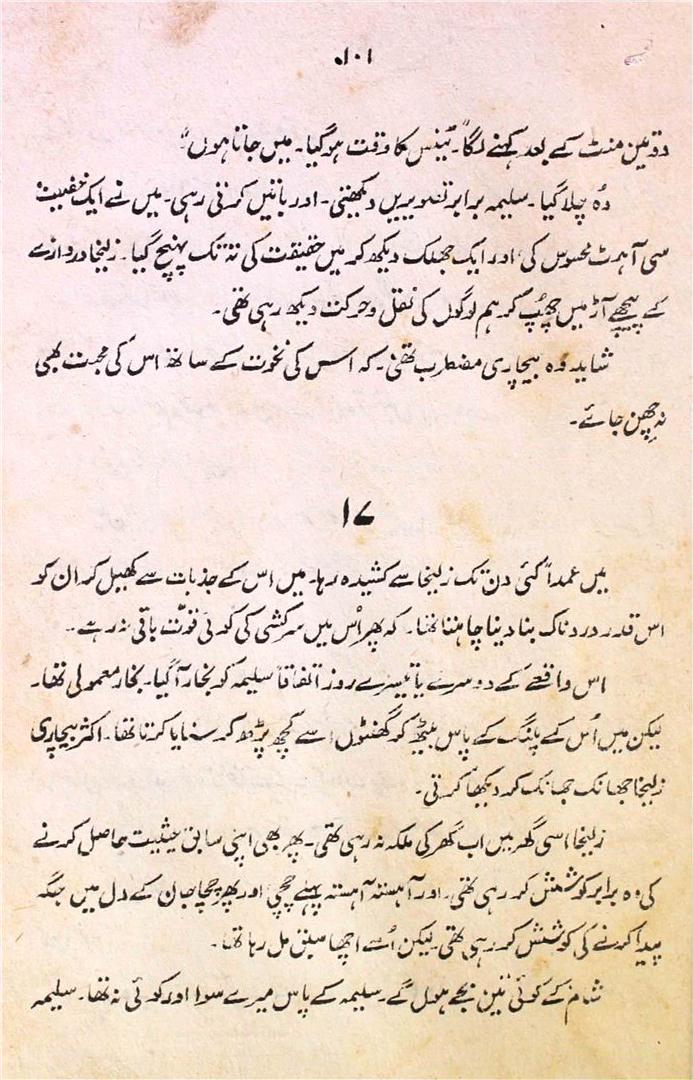 ۱۰۱
دو تین منٹ کے بعد کہنے لگا۔ "ٹینس کا وقت ہو گیا۔ میں جاتا ہوں"۔
وُہ چلا گیا۔ سلیمہ برابر تصویریں دیکھتی۔ اور باتیں کرتی رہی۔ میں نے ایک خفیف
سی آہٹ محسوس کی، اور ایک جھلک دیکھ کر میں حقیقت کی تہ تک پہنچ گیا۔ زلیخا دروازے
کے پیچھے آڑ میں چھُپ کر ہم لوگوں کی نقل و حرکت دیکھ رہی تھی۔
شاید وہ بیچاری مضطرب تھی۔ کہ اس کی نخوت کے ساتھ اس کی محبت بھی
نہ چھن جائے۔
۱۷
میں عمداً کئی دن تک زلیخا سے کشیدہ رہا۔ میں اس کے جذبات سے کھیل کر ان کو
اس قدر دردناک بنا دینا چاہتا تھا۔ کہ پھر اُس میں سرکشی کی کوئی قوّت باقی نہ رہے۔
اس واقعے کے دوسرے یا تیسرے روز اتفاقاً سلیمہ کو بخار آ گیا۔ بخار معمولی تھا۔
لیکن میں اُس کے پلنگ کے پاس بیٹھ کر گھنٹوں اسے کچھ پڑھ کر سنایا کرتا تھا۔ اکثر بیچاری
زلیخا جھانک جھانک کر دیکھا کرتی۔
زلیخا اسی گھر میں اب گھر کی ملکہ نہ رہی تھی۔ پھر بھی اپنی سابق حیثیت حاصل کرنے
کی وہ برابر کوشش کر رہی تھی۔ اور آہستہ آہستہ پہلے چچی اور پھر چچا جان کے دل میں جگہ
پیدا کرنے کی کوشش کر رہی تھی۔ لیکن اُسے اچھا سبق مل رہا تھا۔
شام کے کوئی تین بجے ہوں گے۔ سلیمہ کے پاس میرے سوا اور کوئی نہ تھا۔ سلیمہ